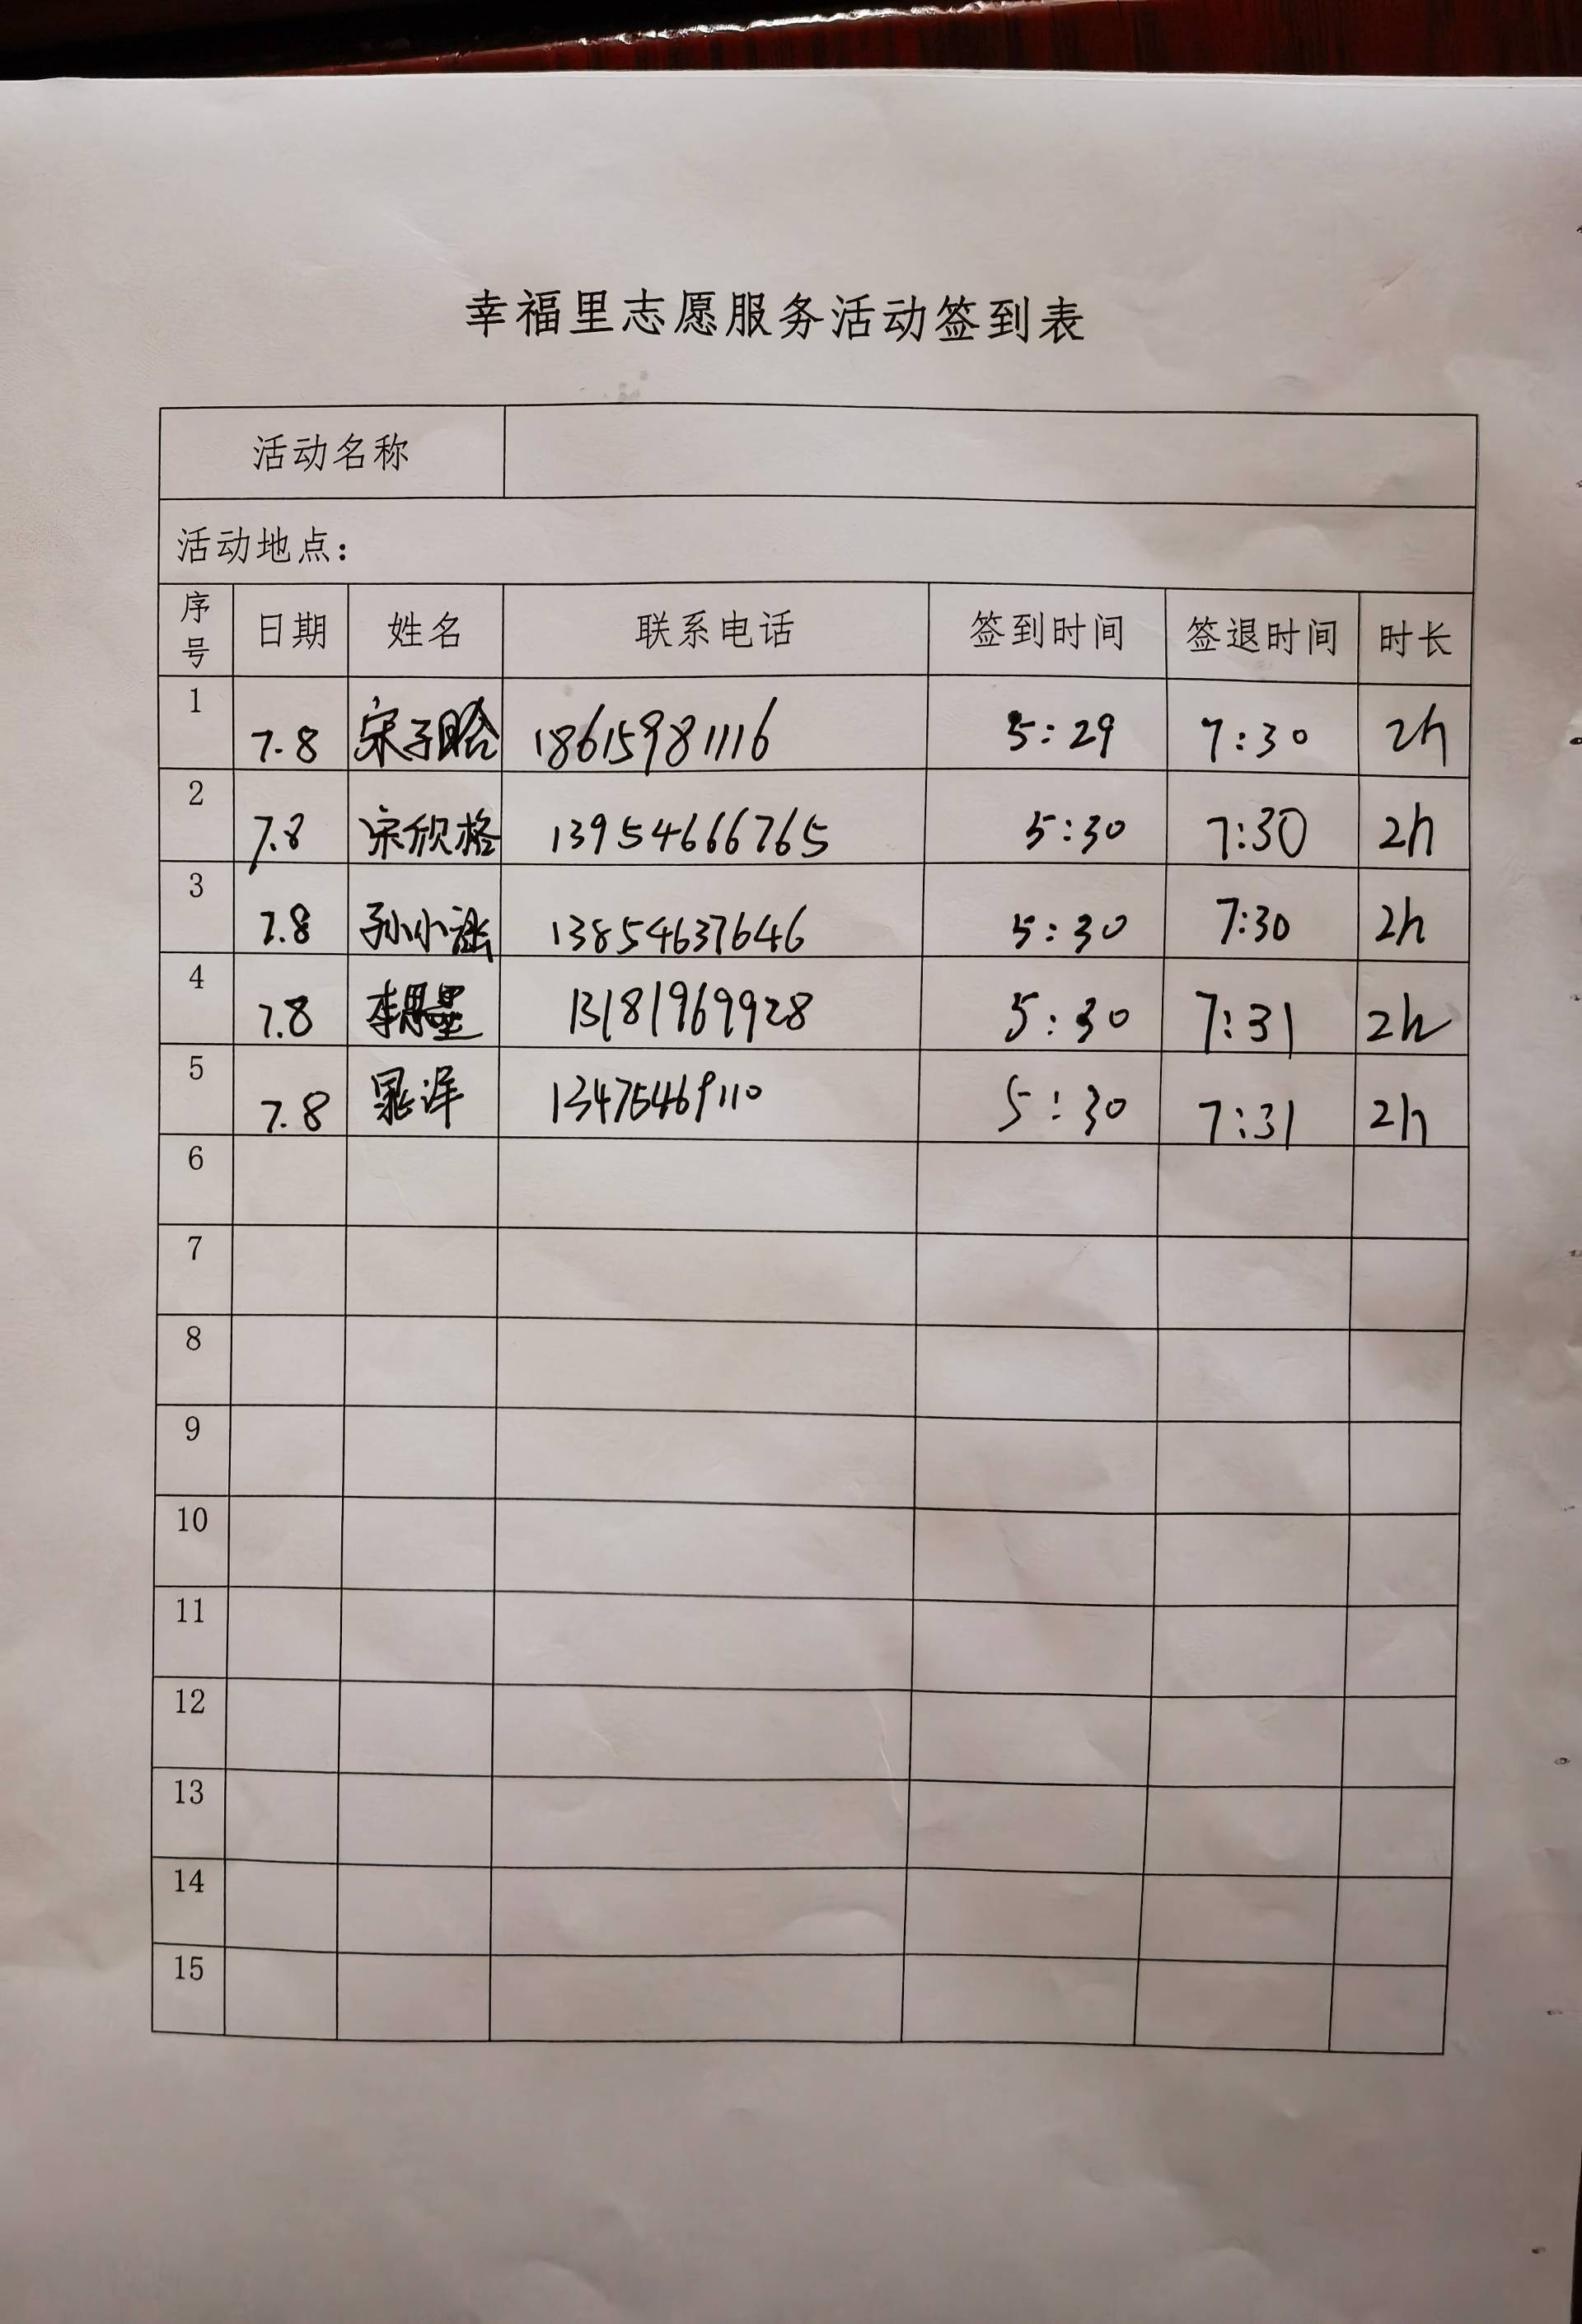 幸福里志愿服务活动签到表
活动名称
活动地点：
序号 日期 姓名 联系电话 签到时间 签退时间 时长
1 7.8 宋子晗 18615981116 5:29 7:30 2h
2 7.8 宋欣格 13954666765 5:30 7:30 2h
3 7.8 孙小涵 13854637646 5:30 7:30 2h
4 7.8 13181969928 5:30 7:31 2h
5 7.8 13475469110 5:30 7:31 2h
6
7
8
9
10
11
12
13
14
15